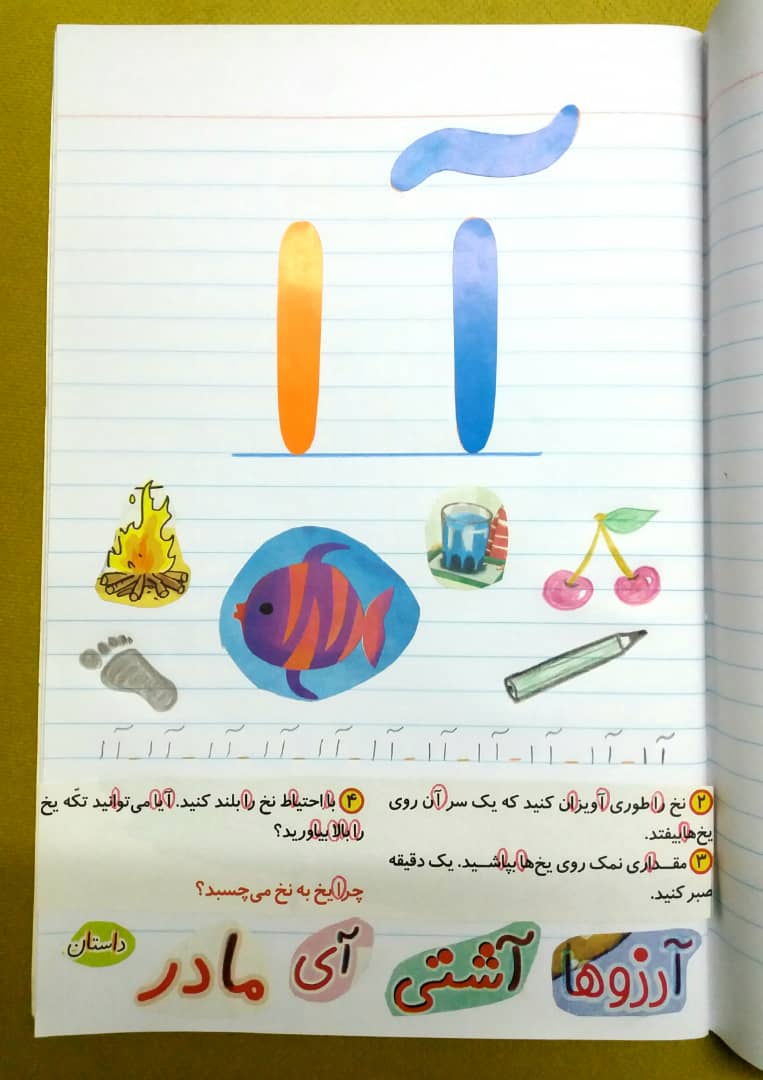 آ ا
آ ا ـ آ ا ـ آ ا ـ آ ا ـ آ ا ـ آ ا ـ آ ا ـ آ ا ـ آ ا ـ آ ا ـ آ ا
۲ نخ را طوری آویزان کنید که یک سر آن روی
یخ‌ها بیفتد.
۳ مقداری نمک روی یخ‌ها بپاشید. یک دقیقه
صبر کنید.
۴ با احتیاط نخ را بلند کنید. آیا می‌توانید تکّه یخ
را بالا بیاورید؟
چرا یخ به نخ می‌چسبد؟
آرزوها آشتی آی مادر داستان